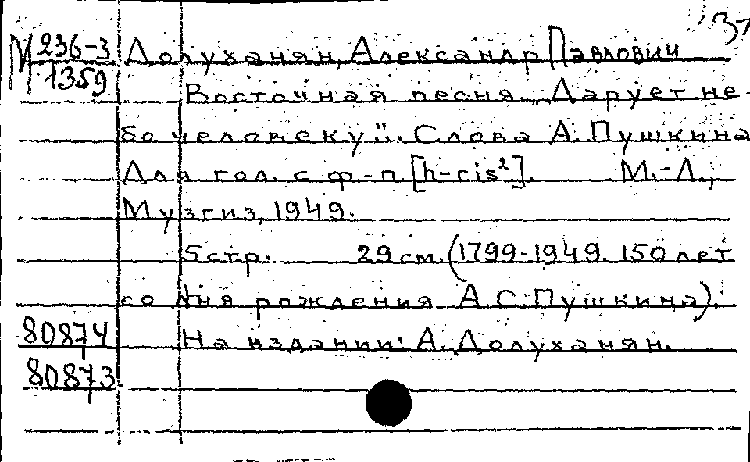 М 236-3 Долуханян, Александр Павлович
1359
Восточная песня „Дарует не-
бо человеку". Слова А. Пушкина
Для гол. с ф-п [h-cis²]. М.-Л.,
Музгиз, 1949.
5 стр. 29 см. (1799-1949. 150 лет
со дня рождения А. С. Пушкина).
80874 На издании: А. Долуханян.
80873